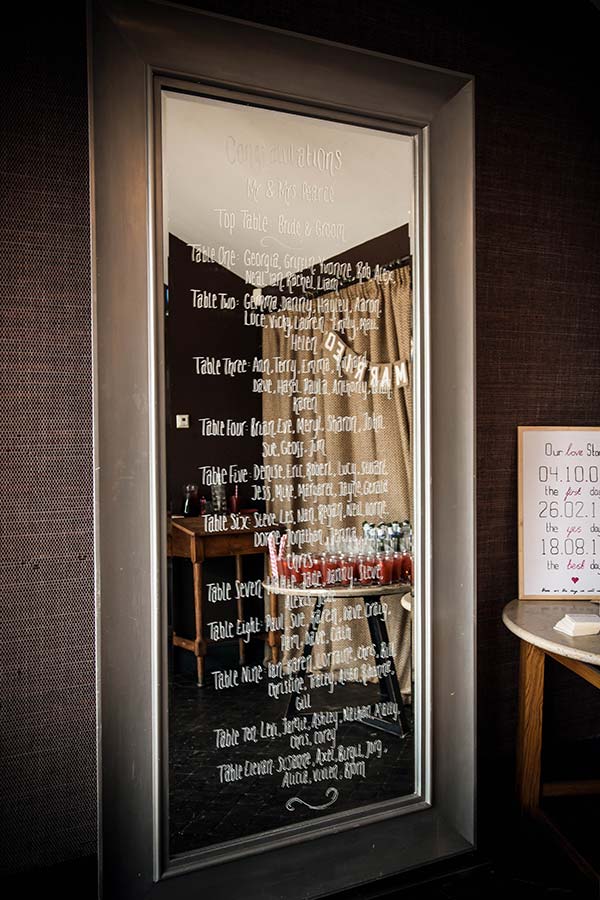 Congratulations
Mr & Mrs Pearce
Top Table: Bride & Groom
Table One: Georgia, Griffin, Yvonne, Rob, Alex,
Neal, Ian, Rachel, Liam
Table Two: Gemma, Danny, Hayley, Aaron,
Luce, Vicky, Lauren, Emily,
Helen
Table Three: Ann, Terry, Emma,
Dave, Hazel, Paula, Anthony,
Karen
Table Four: Brian, Eve, Meryl, Sharon, John
Sue, Geoff, Jim
Table Five: Denise, Eric, Robert, Lucy, Stuart,
Jess, Mike, Margaret, Jayne, Gerald
Table Six: Steve, Les, Nan, Regan, Neil,
Jonathan,
Chris
Table Seven: Danny, Steve,
Table Eight: Paul, Sue, Karen, Dave, Craig,
Pam, Dave, Cath
Table Nine: Ian, Karen, Lorraine, Chris, Bill,
Christine, Tracey,
Gill
Table Ten: Levi, Ashley, Nathan,
Chris, Corey
Table Elevan: Susanne, Axel,
Alicia, Vivien, Bjorn
MARRIED
Our love Sto
04.10.0
the first da
26.02.1
the yes da
18.08.1
the best da